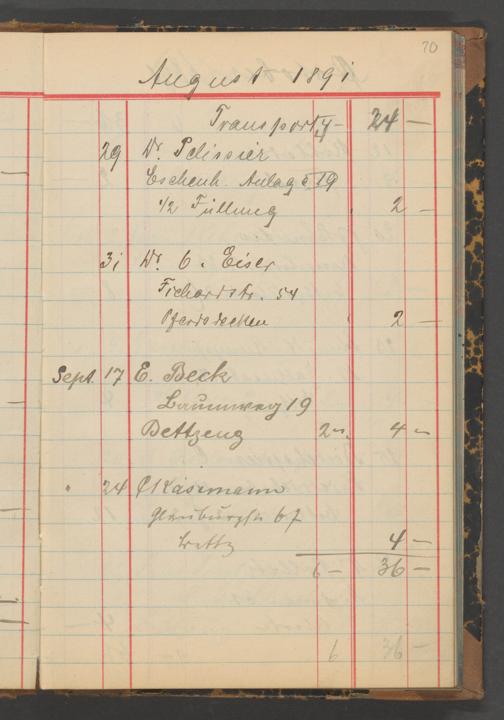 70
August 1891
Transport 4 — 24 —
29 Dr. Pelissier
Eschenh. Anlage 19
1/2 Füllung 2 —
31 Dr. O. Eiser
Fichardstr. 54
Pferdedecken 2 —
Sept. 17 E. Beck
Baumweg 19
Bettzeug 2 4 —
" 24 Käsemann
Glauburgstr 67
4 —
6 — 36 —
6 36 —